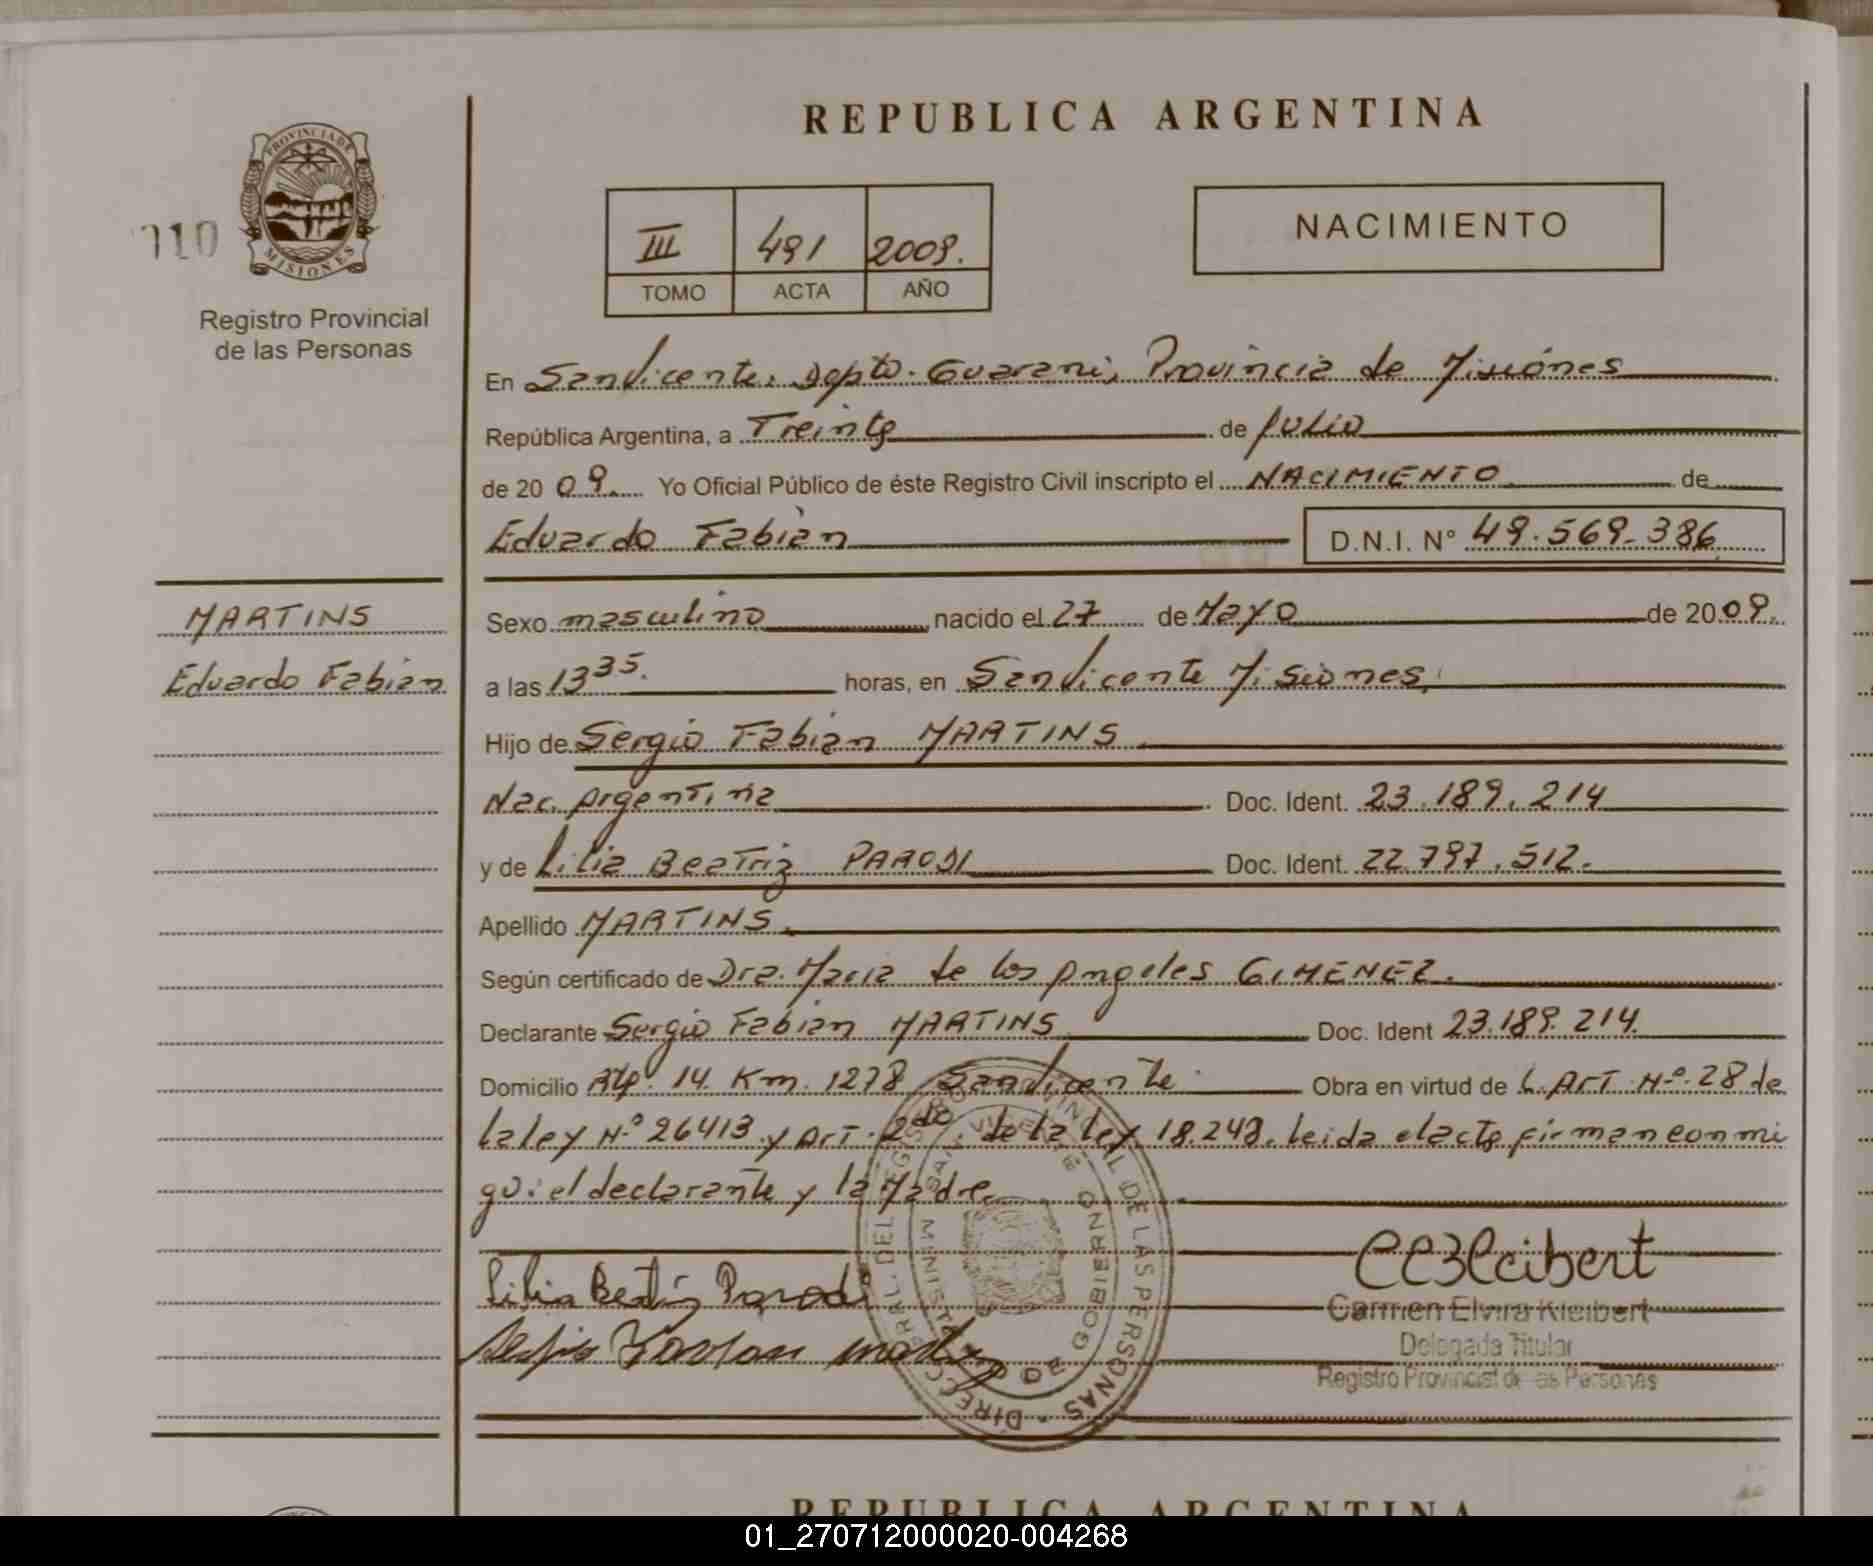 REPUBLICA ARGENTINA
PROVINCIA DE MISIONES
110
Registro Provincial
de las Personas
III 491 2009.
TOMO ACTA AÑO
NACIMIENTO
En San Vicente, Depto. Guarani, Provincia de Misiónes
República Argentina, a Treinta de Julio
de 2009. Yo Oficial Público de éste Registro Civil inscripto el NACIMIENTO de
Eduardo Fabián D.N.I. N° 49.569.386
MARTINS
Eduardo Fabián
Sexo masculino nacido el 27 de Mayo de 2009.
a las 13 35. horas, en San Vicente Misiones,
Hijo de Sergio Fabian MARTINS
Nac. Argentina Doc. Ident. 23.189.214
y de Lilia Beatriz PARODI Doc. Ident. 22.797.512.
Apellido MARTINS.
Según certificado de Dra. Maria de los Angeles GIMENEZ.
Declarante Sergio Fabian MARTINS Doc. Ident 23.189.214.
Domicilio Rta. 14. Km. 1278 San Vicente Obra en virtud de L. ART. Nº. 28 de
la ley Nº 26413 y Art. 2do de la ley 18.248. Leida el acta firman conmi
go: el declarante y la Madre.
Lilia Beatriz Parodi
CEKleibert
Carmen Elvira Kleibert
Delegada Titular
Registro Provincial de las Personas
DIRECC. GRAL. DEL REGISTRO PROVINCIAL DE LAS PERSONAS
MINISTERIO DE GOBIERNO
SAN VICENTE
REPUBLICA ARGENTINA
01_270712000020-004268